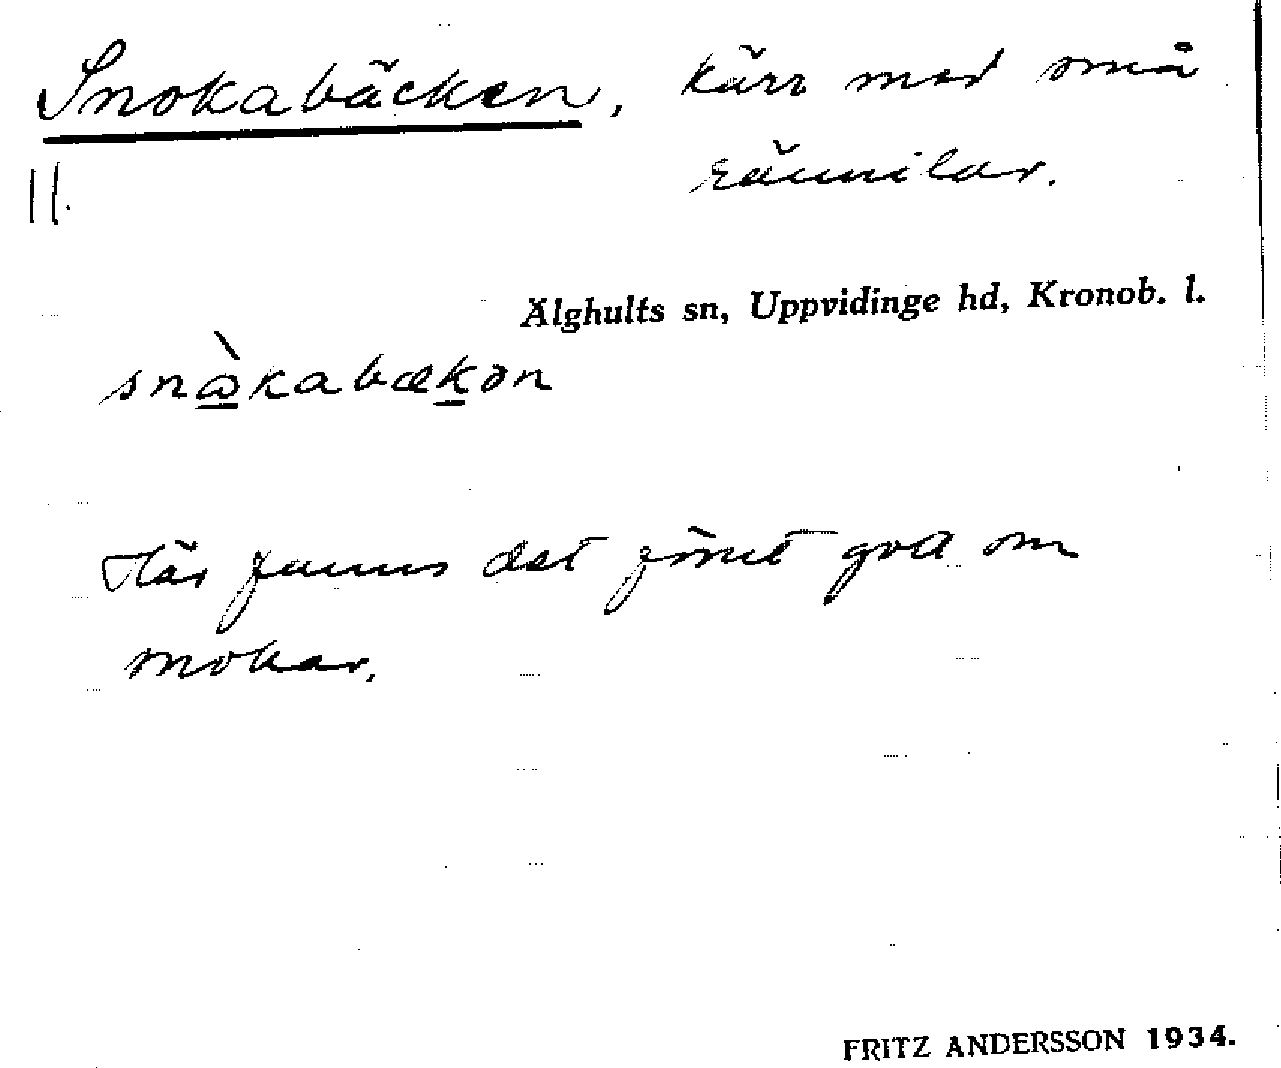 Snokabäcken, kärr med små
rännilar.
11.
Älghults sn, Uppvidinge hd, Kronob. l.
snὰkabækən
Här finns det gott om
snokar.
FRITZ ANDERSSON 1934.